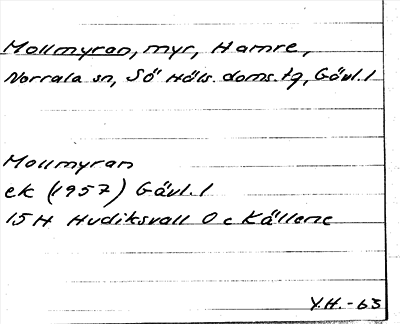 Mollmyran, myr, Hamre,
Norrala sn, Sö Häls. doms. tg, Gävl. l
Mollmyran
ek (1957) Gävl. l
15H Hudiksvall 0 c Källene
Y.H. -63